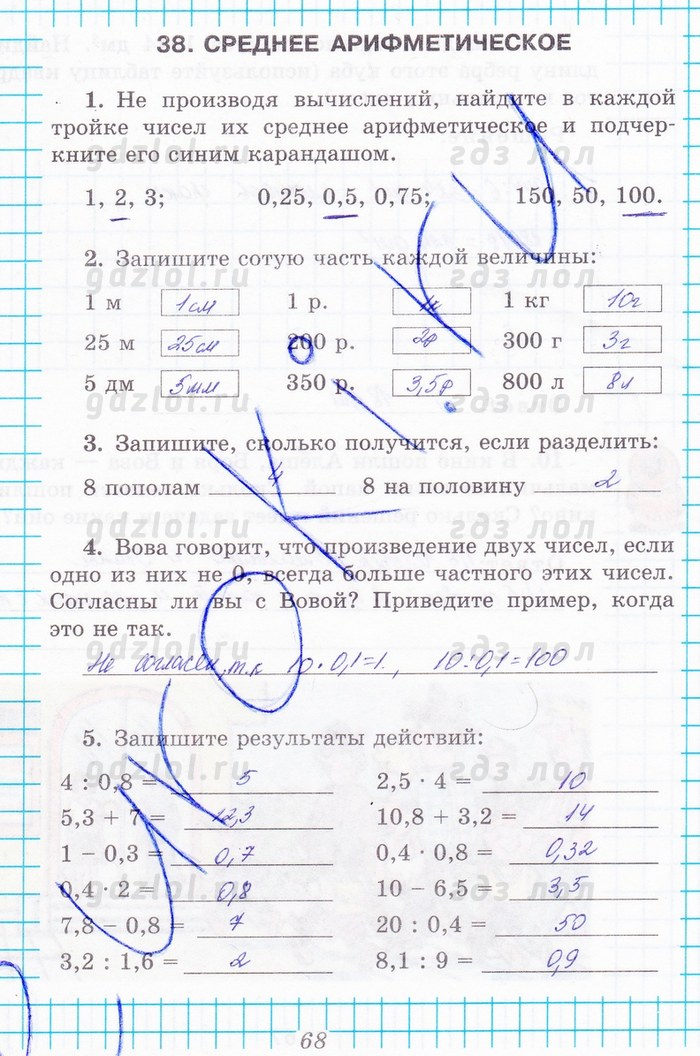 38. СРЕДНЕЕ АРИФМЕТИЧЕСКОЕ
1. Не производя вычислений, найдите в каждой
тройке чисел их среднее арифметическое и подчер-
кните его синим карандашом.
gdzlol.ru гдз лол
1, 2, 3; 0,25, 0,5, 0,75; 150, 50, 100.
2. Запишите сотую часть каждой величины:
gdzlol.ru гдз лол
1 м 1см 1 р. 1к 1 кг 10г
25 м 25см 200 р. 2р 300 г 3г
5 дм 5мм 350 р. 3,5р 800 л 8л
gdzlol.ru гдз лол
3. Запишите, сколько получится, если разделить:
8 пополам 4 8 на половину 2
gdzlol.ru гдз лол
4. Вова говорит, что произведение двух чисел, если
одно из них не 0, всегда больше частного этих чисел.
Согласны ли вы с Вовой? Приведите пример, когда
это не так.
gdzlol.ru гдз лол
Не согласен, т.к 10 · 0,1=1, 10:0,1=100
5. Запишите результаты действий:
gdzlol.ru гдз лол
4 : 0,8 = 5 2,5 · 4 = 10
5,3 + 7 = 12,3 10,8 + 3,2 = 14
1 – 0,3 = 0,7 0,4 · 0,8 = 0,32
0,4 · 2 = 0,8 10 – 6,5 = 3,5
gdzlol.ru гдз лол
7,8 – 0,8 = 7 20 : 0,4 = 50
3,2 : 1,6 = 2 8,1 : 9 = 0,9
68